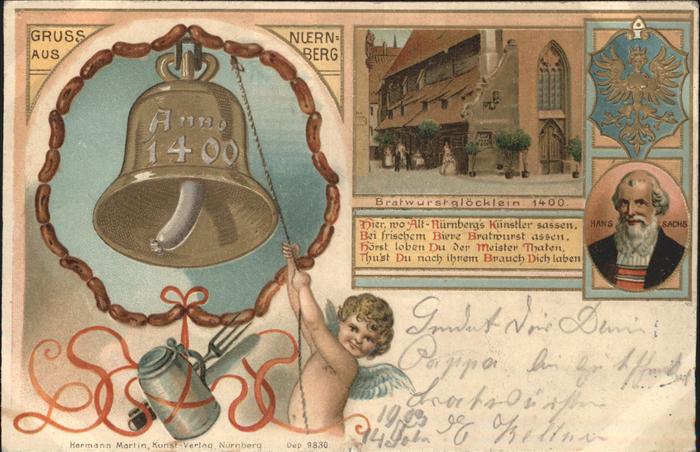 GRUSS AUS
NUERN-BERG
Anno
1400
Bratwurstglöcklein 1400.
Hier, wo Alt-Nürnberg's Künstler sassen,
Bei frischem Biere Bratwurst assen,
Hörst loben Du der Meister Thaten,
Thu'st Du nach ihrem Brauch Dich laben
HANS SACHS
Sendet Dir Dein
Pappa
Bratwürste
1903
14
Hermann Martin, Kunst-Verlag Nürnberg Dep 9830